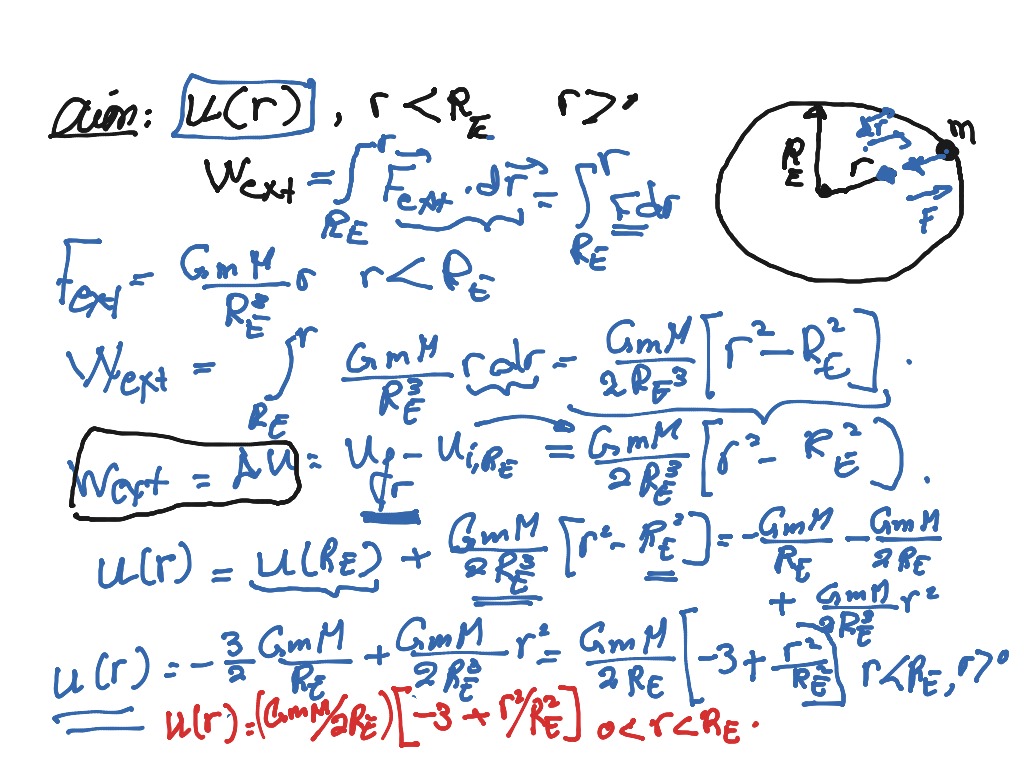 aim: U(r), r < R_E r >,
W_ext = ∫_{R_E}^{r} F_ext . dr = ∫_{R_E}^{r} F dr
R_E r Δr m F
F_ext = GmM/R_E^3 r r < R_E
W_ext = ∫_{R_E}^{r} GmM/R_E^3 r dr = GmM/2R_E^3 [r^2 - R_E^2] .
W_ext = ΔU = U_{f,r} - U_{i,R_E} = GmM/2R_E^3 [r^2 - R_E^2) .
U(r) = U(R_E) + GmM/2R_E^3 [r^2 - R_E^2] = -GmM/R_E - GmM/2R_E
+ GmM/2R_E^3 r^2
U(r) = -3/2 GmM/R_E + GmM/2R_E^3 r^2 = GmM/2R_E [-3 + r^2/R_E^2] r<R_E, r>0
U(r) = (GmM/2R_E)[-3 + r^2/R_E^2] 0<r<R_E.